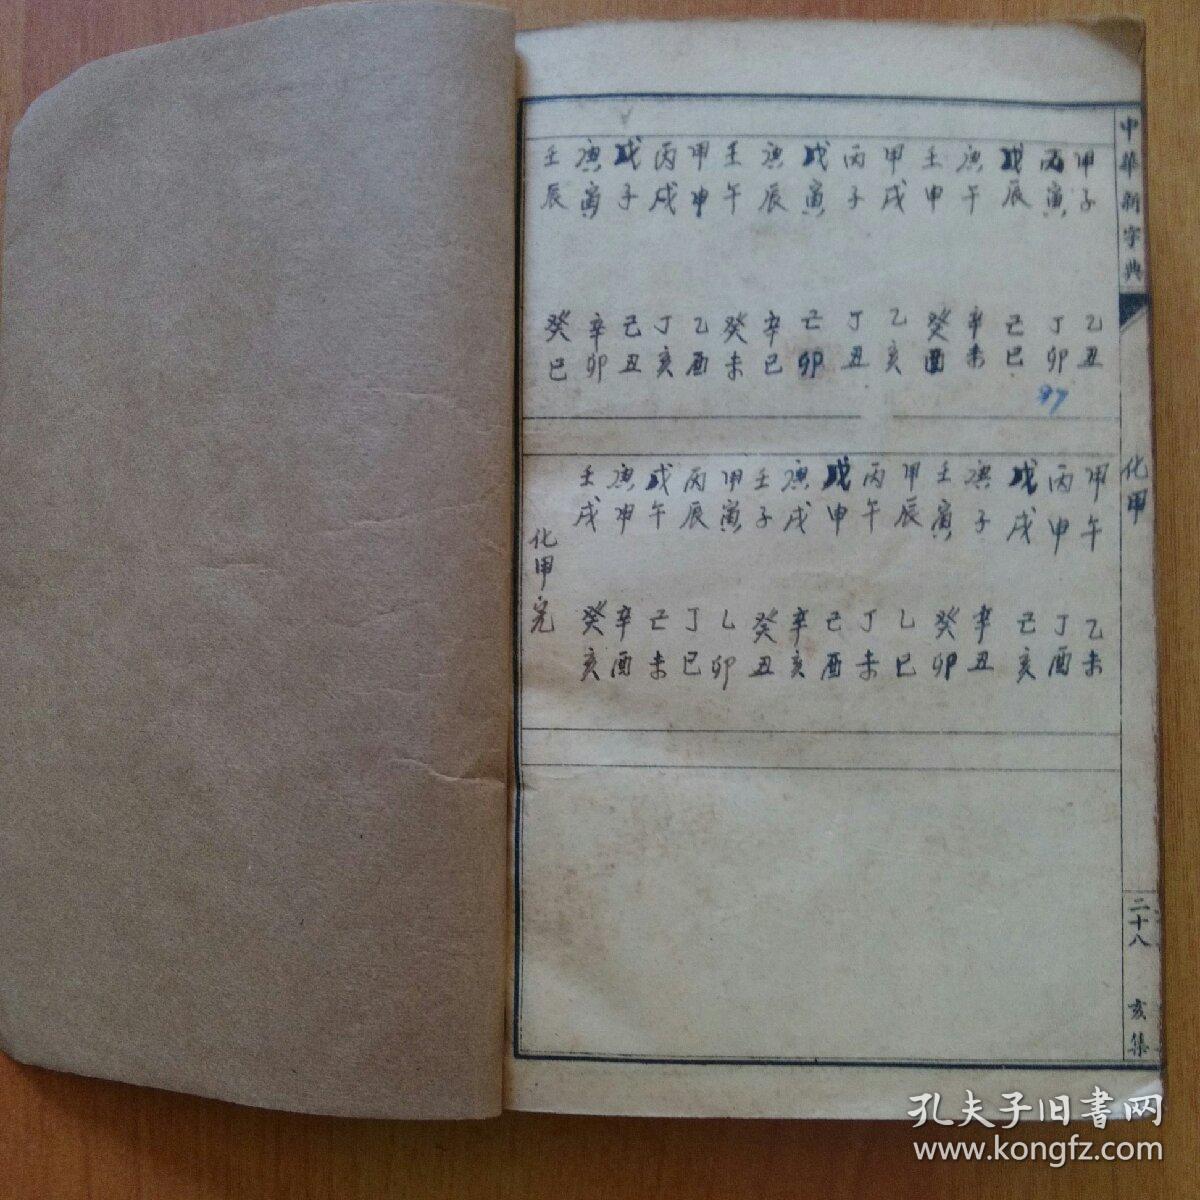 中華新字典
化甲
二十八
亥集
甲子 乙丑
丙寅 丁卯
97
戊辰 己巳
庚午 辛未
壬申 癸酉
甲戌 乙亥
丙子 丁丑
戊寅 己卯
庚辰 辛巳
壬午 癸未
甲申 乙酉
丙戌 丁亥
戊子 己丑
庚寅 辛卯
壬辰 癸巳
甲午 乙未
丙申 丁酉
戊戌 己亥
庚子 辛丑
壬寅 癸卯
甲辰 乙巳
丙午 丁未
戊申 己酉
庚戌 辛亥
壬子 癸丑
甲寅 乙卯
丙辰 丁巳
戊午 己未
庚申 辛酉
壬戌 癸亥
化甲完
孔夫子旧書网
www.kongfz.com